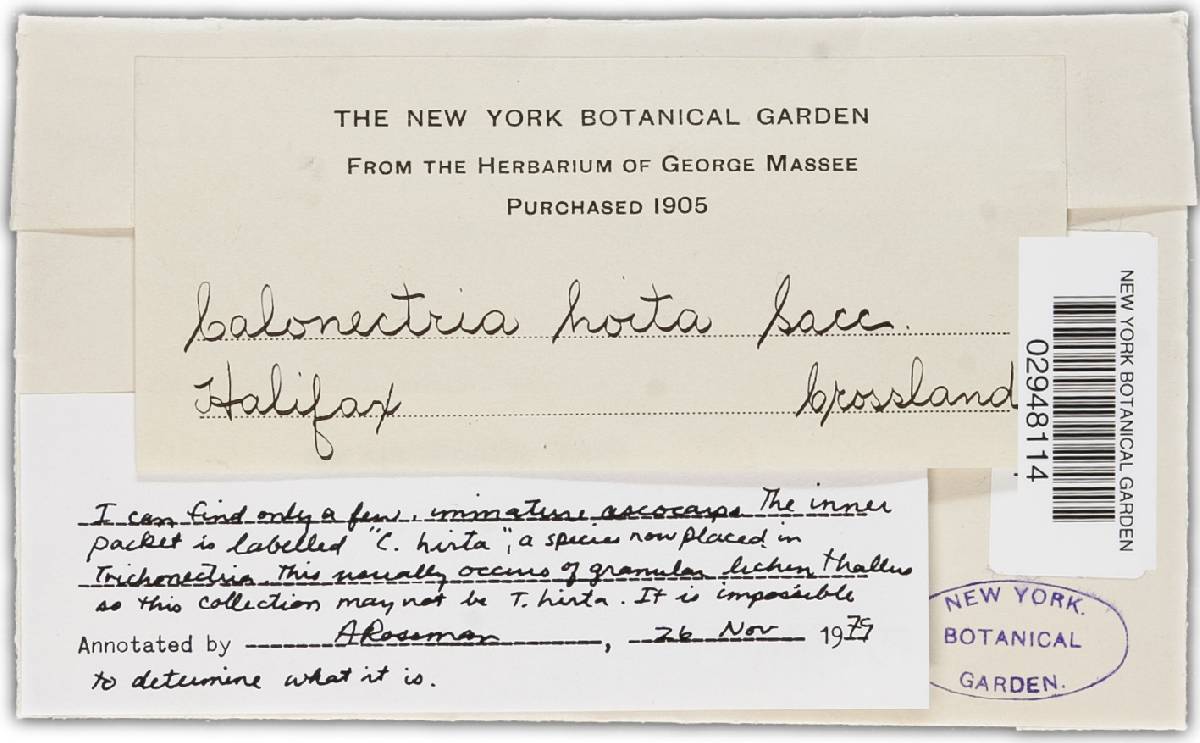 THE NEW YORK BOTANICAL GARDEN
FROM THE HERBARIUM OF GEORGE MASSEE
PURCHASED 1905
Calonectria hoita Sacc.
Halifax Crossland
NEW YORK BOTANICAL GARDEN
02948114
I can find only a few, immature ascocarps The inner
packet is labelled "C. hirta", a species now placed in
Trichonectria This usually occurs of granular lichen thallus
so this collection may not be T. hirta. It is impossible
Annotated by ARossman, 26 Nov 1979
to determine what it is.
NEW YORK.
BOTANICAL
GARDEN.